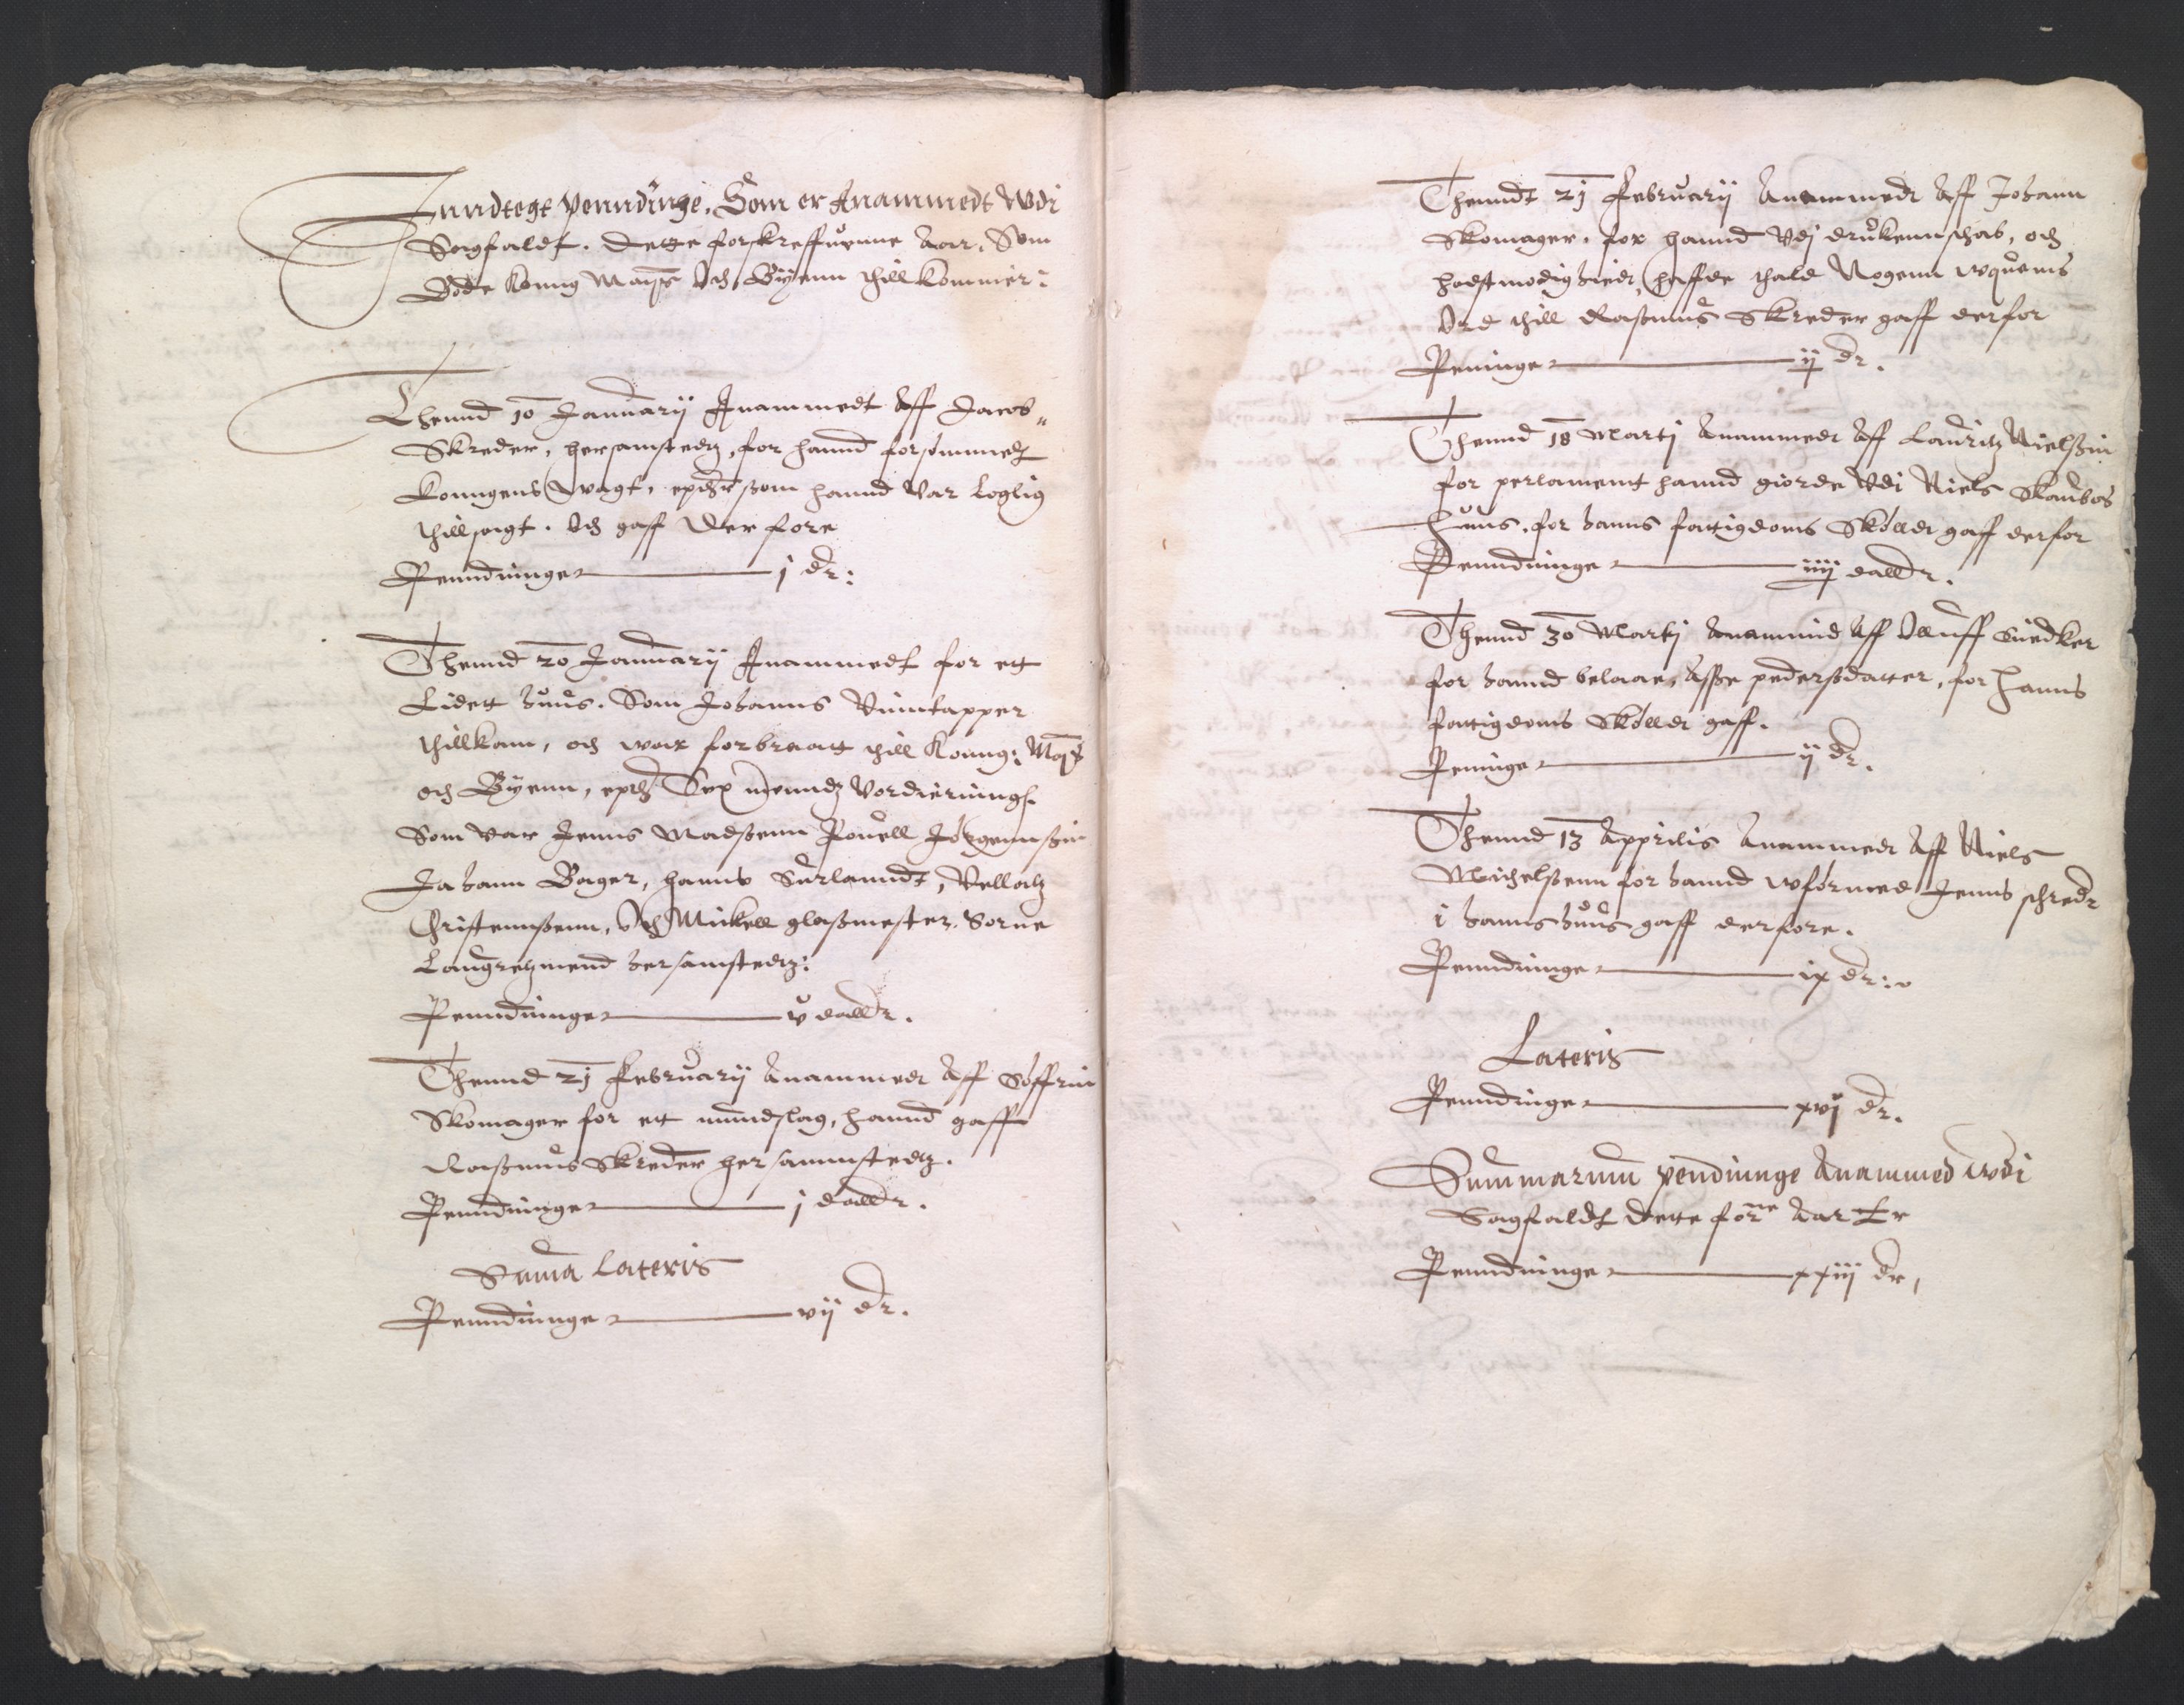 Inndtegt Penndinge, Som er Anammedt Wdi
Sagfaldt. dette forskreffuenne Aar. Som
Bode Konng Mayts Och Byenn thill kommer:
Thennd 10 Januarij Anammedt Aff Jacob
Skreder, hersamstedz, for hannd forsømmedt
Konngens Wagt, epther som hannd Var loglig
thillsagt. Och gaff Der fore
Penndninge ——— j dr:
Thennd 20 Januarij Anammedt for ett
Lidett huus. Som Johanns Vinntapper
thillkom, och waar forbraatt thill Konng: Mayts
och Byenn, epther Sex menndz Vordierinngh
Som Var Jenns Madssenn Pouell Jørgennssøn
Johann Bager, Hanns Surlanndt, Vellatz
Christennssenn, Och Mickell glassmester. Sorne
Laugretzmend hersamstedtz:
Penndninge ——— v dallr.
Thennd 21 Februarij Anammedt Aff Søffrin
Skomager for ett mundslag, hannd gaff
Rassmus Skreder her sammstedtz.
Penndninge ——— j dallr.
Suma Lateris
Penndninge ——— vij dr.
Thenndt 21 Februarij Anammedt Aff Johann
Skomager. for hannd Vdj druckennschab, och
hoffmodighiedt, haffde thald Nogenn wquems
Ord thill Rassmus Skreder gaff derfor
Peninge ——— ij dr.
Thennd 18 Martj Anammedt Aff Lauritz Nielssøn
for perlament hannd giorde Vdi Niels Skaubos
Huus. for hanns fattigdoms Skølldt gaff derfor
Penndninge ——— iiij dalldr.
Thennd 30 Martj Anammid Aff Olluff Snedker
for hannd belaae, Asse Pederssdatter, for Hanns
fattigdoms Skølldt gaff.
Peninge ——— ij dr.
Thennd 13 Apprilis Anammedt Aff Niels
Michelssenn for hannd wførmed Jenns schredr
i hanns huus gaff derfore.
Penndninge ——— ix dr:
Lateris
Penndinge ——— xvj dr.
Summarum pendninge Anammed Wdi
Sagfaldt dette forne Aar Er
Penndninge ——— xxiij dr,